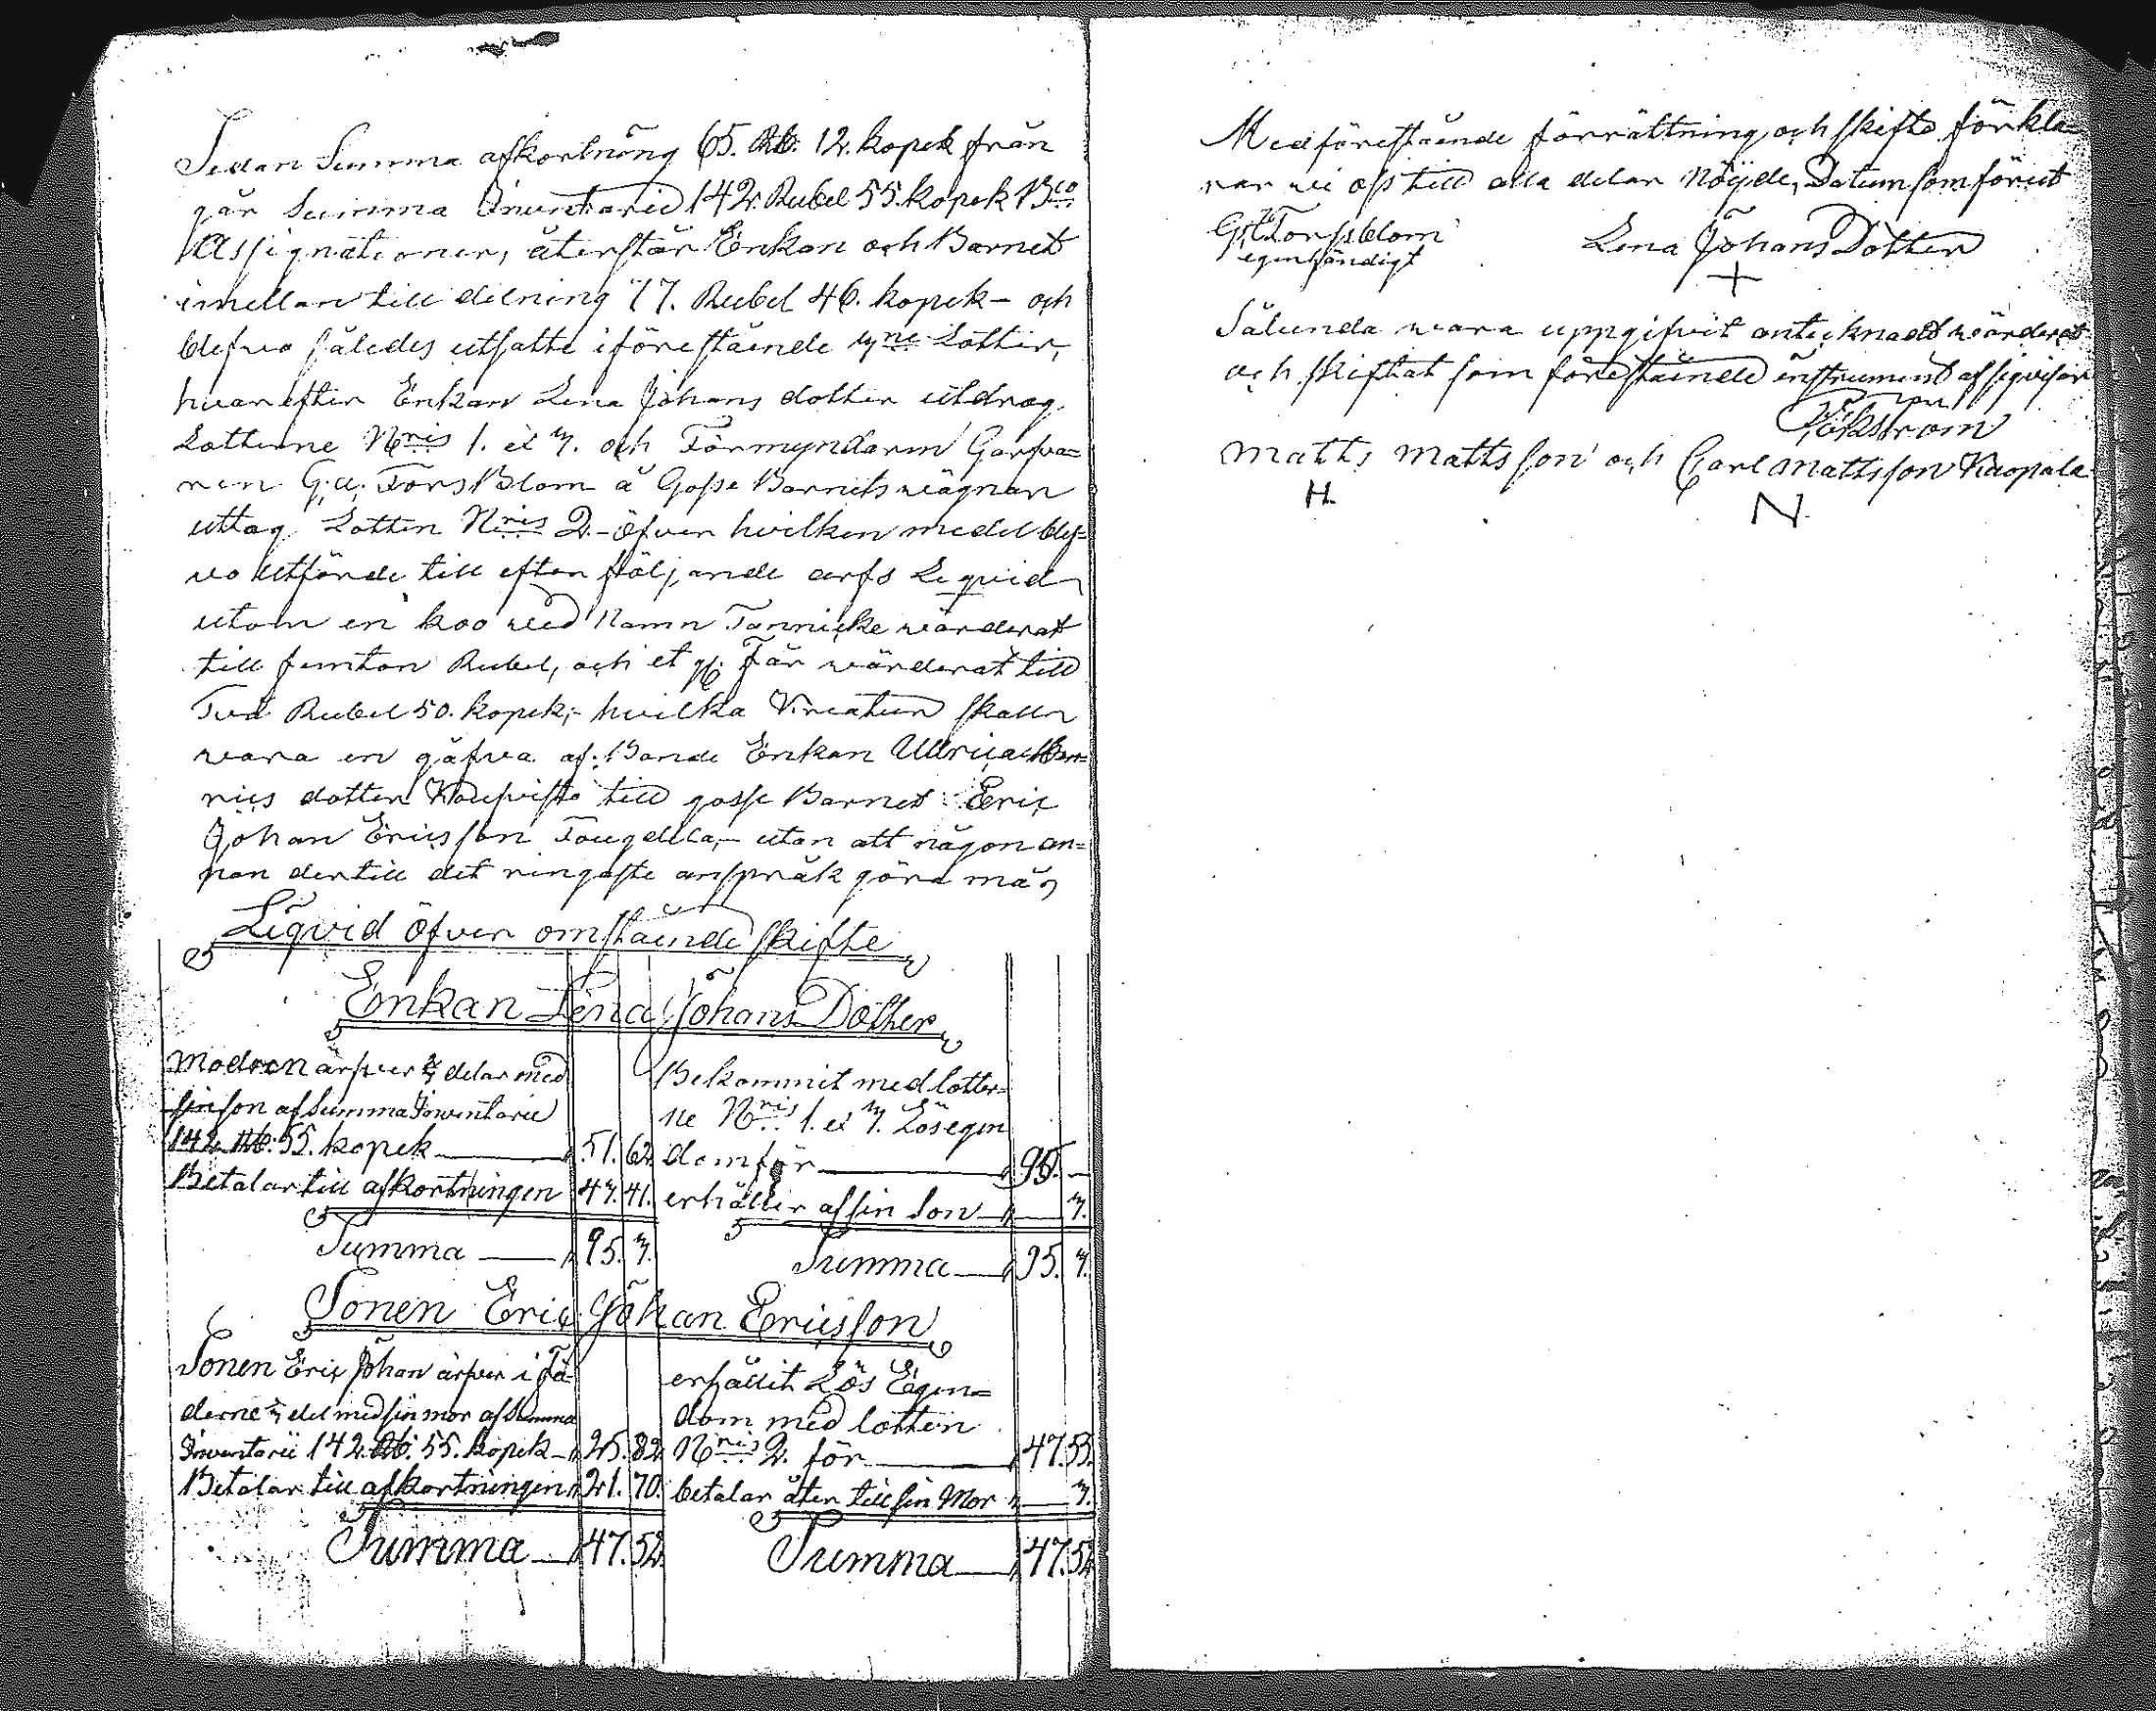 Sedan Summa afkortning 65. Rb. 12. kopek från
går Summa Inventarie 142. Rubel 55. kopek Bco
Assignationer, återstår Enkan och Barnet
imellan till delning 77. Rubel 46. kopek – och
blefvo således utsatte i föreståënde 3ne Lotter,
hvarefter Enkan Lena Johans dotter utdrog
Lotterne Nris 1. et 3. och Förmyndaren Garfva=
ren G: a: Fors Blom å Gosse Barnets wägnar
uttog Lotten Nris 2. – öfver hvilken medel blef=
vo utförde till efter följande arfs Liqvid
utom en koo ved Namn Tannicke wärderat
till femton Rubel, och et st: Får wärderat till
Två Rubel 50. kopek; – hvilka Kreatur skall
vara en gåfva af: Bonde Enkan Ullrica Hen=
rics dotter till gosse Barnet Eric
Johan Ericsson – utan att någon an=
nan dertill det ringaste anspråk göra må,
Liqvid öfver omståënde skifte
Enkan Lena Johans Dotter
Modren ärfver 2/3 delar med
sin son af Summa Inventarie
142. Rb: 55. kopek — 51. 62.
Betalar till afkortningen 43. 41.
Summa — 95. 3.
Bekommit med lotter=
ne Nris 1. et 3. Lösegen
dom för — 95. —
erhåller af sin Son — 3.
Summa — 95. 3.
Sonen Eric Johan Ericsson
Sonen Eric Johan ärfver i Fä
derne 1/3 del med sin mor af Summa
Inventarii 142. Rb. 55. kopek 25. 82.
Betalar till afkortningen 21. 70.
Summa — 47. 52.
erhållit Lös Egen=
dom med lotten
Nris 2. för — 47. 55.
betalar åter till sin Mor — 3.
Summa — 47. 52.
Med föreståënde förrättning och skifte förkla=
rar vi oss till alla delar Nöÿde, Datum som förut
G: A: Forssblom
egenhändigt
Lena Johans Dotter
+
Sålunda wara uppgifvit antecknadt wärderat
och skiftat som föreståënde instrument af sig viser
Wikström
Matts Mattsson och Carl Mattsson Knopala
H.
N.